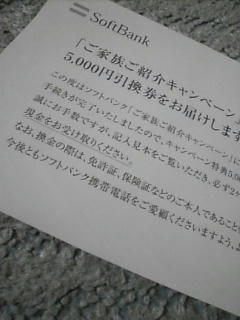 SoftBank
「ご家族ご紹介キャンペーン
5,000円引換券をお届けします
この度はソフトバンク「ご家族ご紹介キャンペーン」に
手続きが完了いたしましたので、キャンペーン特典5,0
誠にお手数ですが、記入見本をご覧いただき、必ず2ヶ
現金をお受け取りください。
なお、換金の際は、免許証、保険証などのご本人であること
今後ともソフトバンク携帯電話をご愛顧くださいますよう、よ